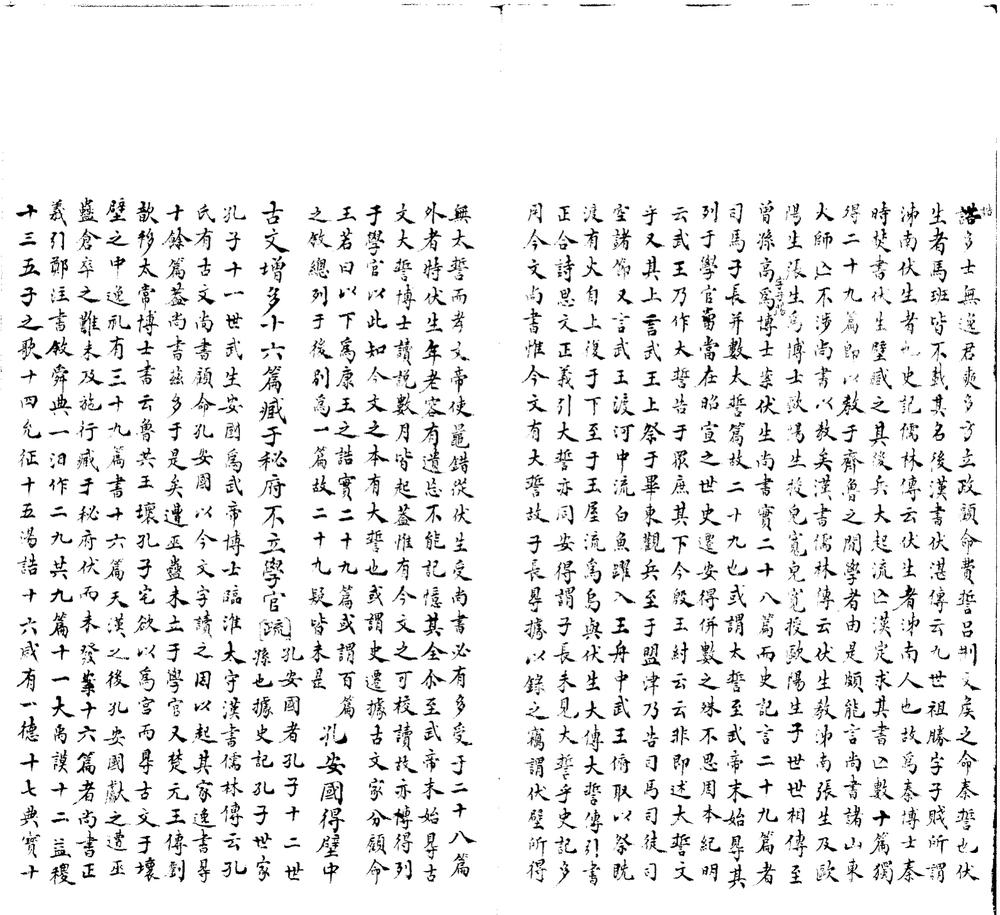 誥多士無逸君奭多方立政顧命費誓呂刑文矦之命秦誓也伏
生者馬班皆不載其名後漢書伏湛傳云九世祖勝字子賤所謂
沛南伏生者也史記儒林傳云伏生者沛南人也故爲秦博士秦
時焚書伏生壁藏之其後兵大起流亾漢定求其書亾數十篇獨
得二十九篇卽以敎于齊魯之閒學者由是頗能言尚書諸山東
大師亾不涉尚書以敎矣漢書儒林傳云伏生敎沛南張生及歐
陽生張生爲博士歐陽生授皃寬皃寬授歐陽生子世世相傳至
曾孫高爲博士案伏生尚書實二十八篇而史記言二十九篇者
司馬子長并數太誓篇故二十九也或謂太誓至武帝末始㝵其
列于學官當在昭宣之世史遷安得併數之殊不思周本紀明
云武王乃作大誓告于眾庶其下今殷王紂云云非卽述大誓文
乎又其上言武王上祭于畢東觀兵至于盟津乃告司馬司徒司
空諸節又言武王渡河中流白魚躍入王舟中武王俯取以祭旣
渡有火自上復于下至于王屋流爲烏與伏生大傳大誓傳引書
正合詩思文正義引大誓亦同安得謂子長未見大誓乎史記多
同今文尚書惟今文有大誓故子長㝵據以錄之竊謂伏壁所得
無太誓而孝文帝使鼂錯從伏生受尚書必有多受于二十八篇
外者特伏生年老容有遺忘不能記憶其全尒至武帝末始㝵古
文大誓博士讀說數月皆起葢惟有今文之可校讀故亦博得列
于學官以此知今文之本有大誓也或謂史遷據古文家分顧命
王若曰以下爲康王之誥實二十九篇或謂百篇
之敘總列于後別爲一篇故二十九疑皆未是
古文增多十六篇臧于秘府不立學官 疏 孔安國者孔子十二世 孫也據史記孔子世家 孔安國得壁中
孔子十一世武生安國爲武帝博士臨淮太守漢書儒林傳云孔
氏有古文尚書顧命孔安國以今文字讀之因以起其家逸書㝵
十餘篇葢尚書茲多于是矣遭巫蠱未立于學官又楚元王傳劉
歆移太常博士書云魯共王壞孔子宅欲以爲宮而㝵古文于壞
壁之中逸禮有三十九篇書十六篇天漢之後孔安國獻之遭巫
蠱倉卒之難未及施行臧于秘府伏而未發案十六篇者尚書正
義引鄭注書敘舜典一汩作二九共九篇十一大禹謨十二益稷
十三五子之歌十四允征十五湯誥十六咸有一德十七典寶十